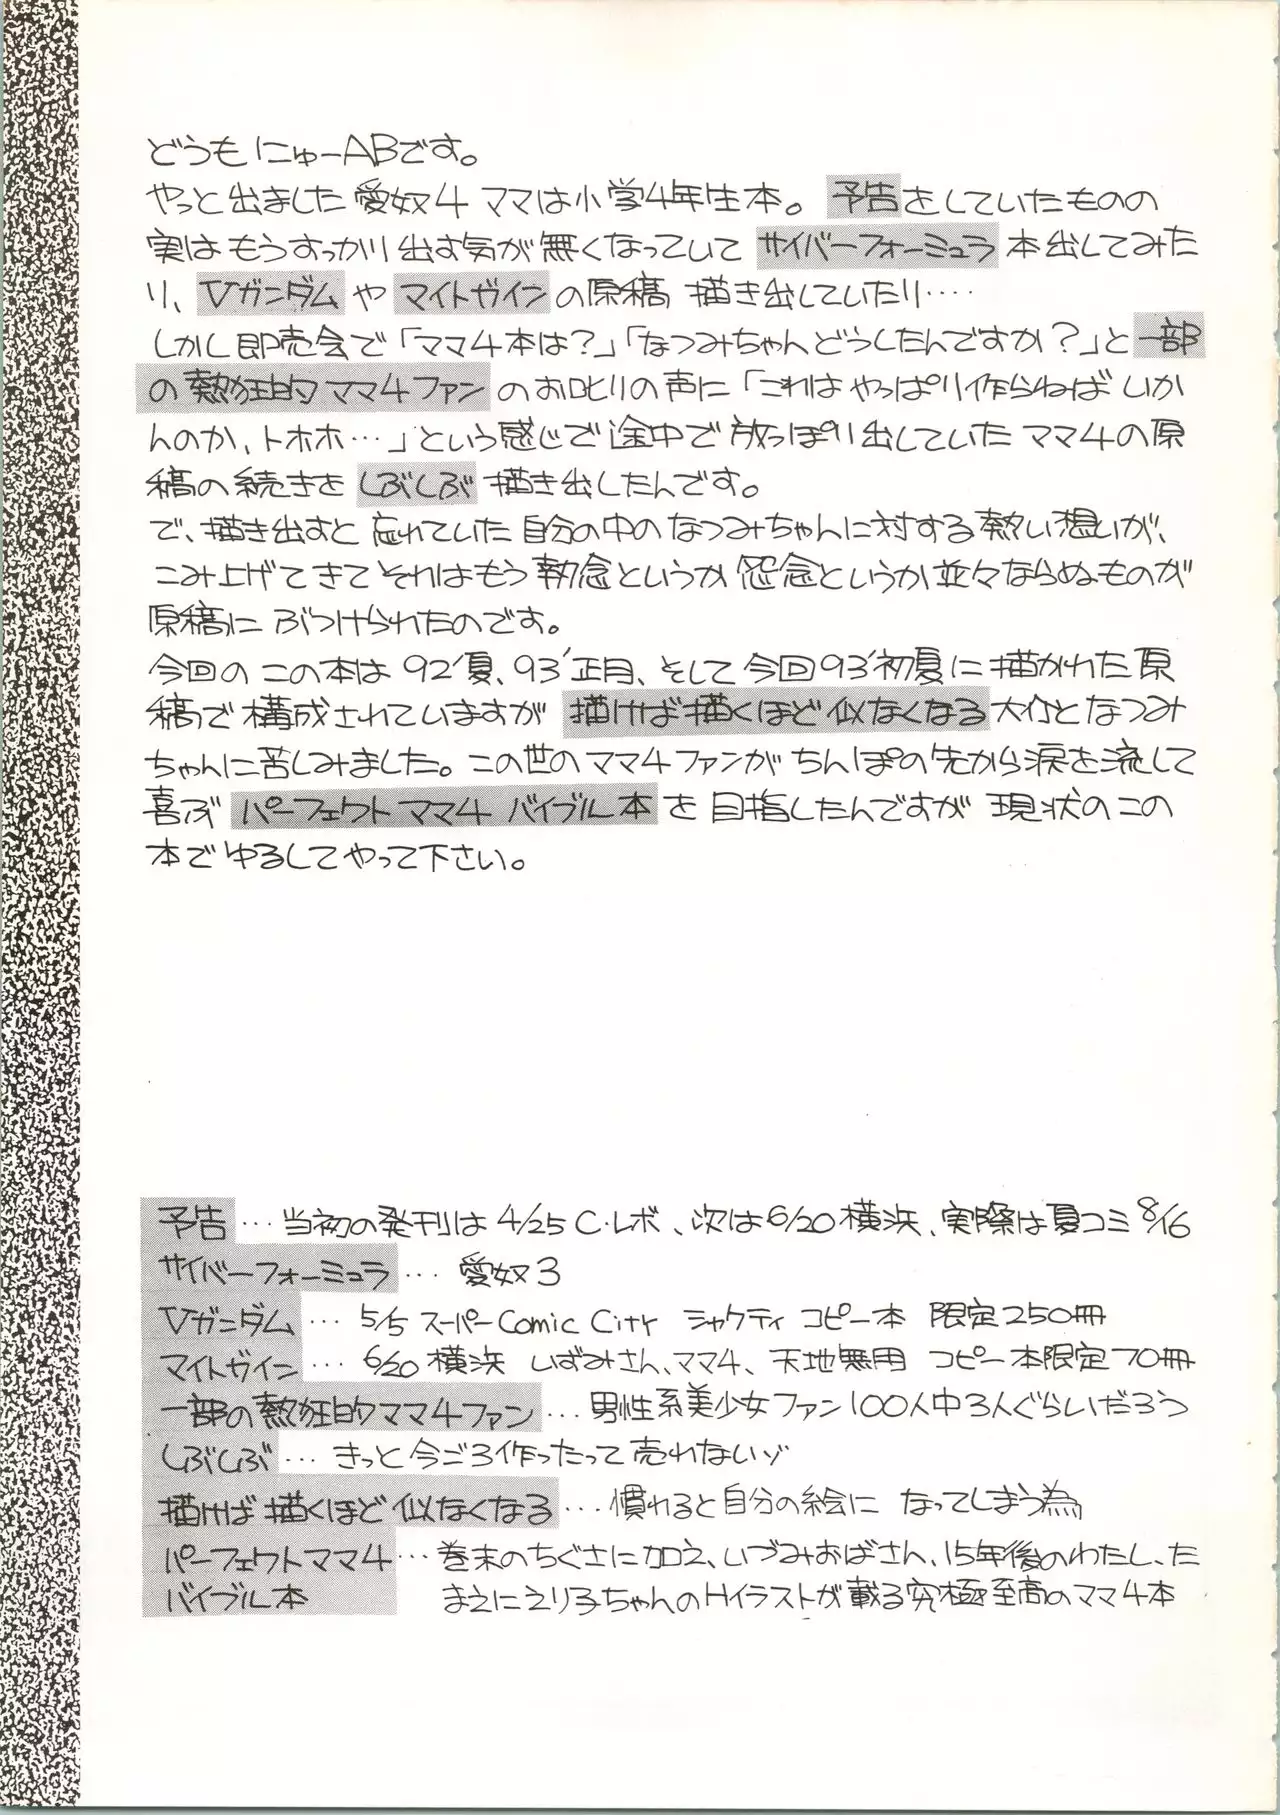 どうも にゅーABです。
やっと出ました 愛奴4 ママは小学4年生本。 予告をしていたものの
実はもうすっかり出す気が無くなっていて サイバーフォーミュラ 本出してみた
り、Vガンダム や マイトガイン の原稿 描き出していたり‥‥
しかし即売会で「ママ4本は?」「なつみちゃんどうしたんですか?」と 一部
の 熱狂的 ママ4ファン のお叱りの声に「これは やっぱり作らねば いか
んのか、トホホ…」という感じで 途中で 放っぽり出していた ママ4の原
稿の続きを しぶしぶ 描き出したんです。
で、描き出すと 忘れていた 自分の中の なつみちゃんに対する 熱い想いが、
こみ上げてきて それはもう 執念というか 怨念というか 並々ならぬものが
原稿に ぶつけられたのです。
今回の この本は 92'夏、93'正月、そして 今回93'初夏に 描かれた 原
稿で 構成されていますが 描けば描くほど 似なくなる 大介となつみ
ちゃんに苦しみました。この世のママ4ファンが ちんぽの先から涙を流して
喜ぶ パーフェクト ママ4 バイブル本 を 目指したんですが 現状のこの
本で ゆるしてやって下さい。
予告 … 当初の発刊は 4/25 C・レボ、次は6/20横浜、実際は夏コミ 8/16
サイバーフォーミュラ … 愛奴3
Vガンダム … 5/5 スーパーComic City シャクティ コピー本 限定250冊
マイトガイン … 6/20 横浜 いずみさん、ママ4、天地無用 コピー本限定70冊
一部の熱狂的ママ4ファン … 男性系美少女ファン100人中3人ぐらいだろう
しぶしぶ … きっと今ごろ作ったって売れないゾ
描けば描くほど似なくなる … 慣れると自分の絵に なってしまう為
パーフェクトママ4 … 巻末のちぐさに加え、いづみおばさん、15年後のわたし、た
バイブル本 まえにえり子ちゃんのHイラストが載る究極至高のママ4本